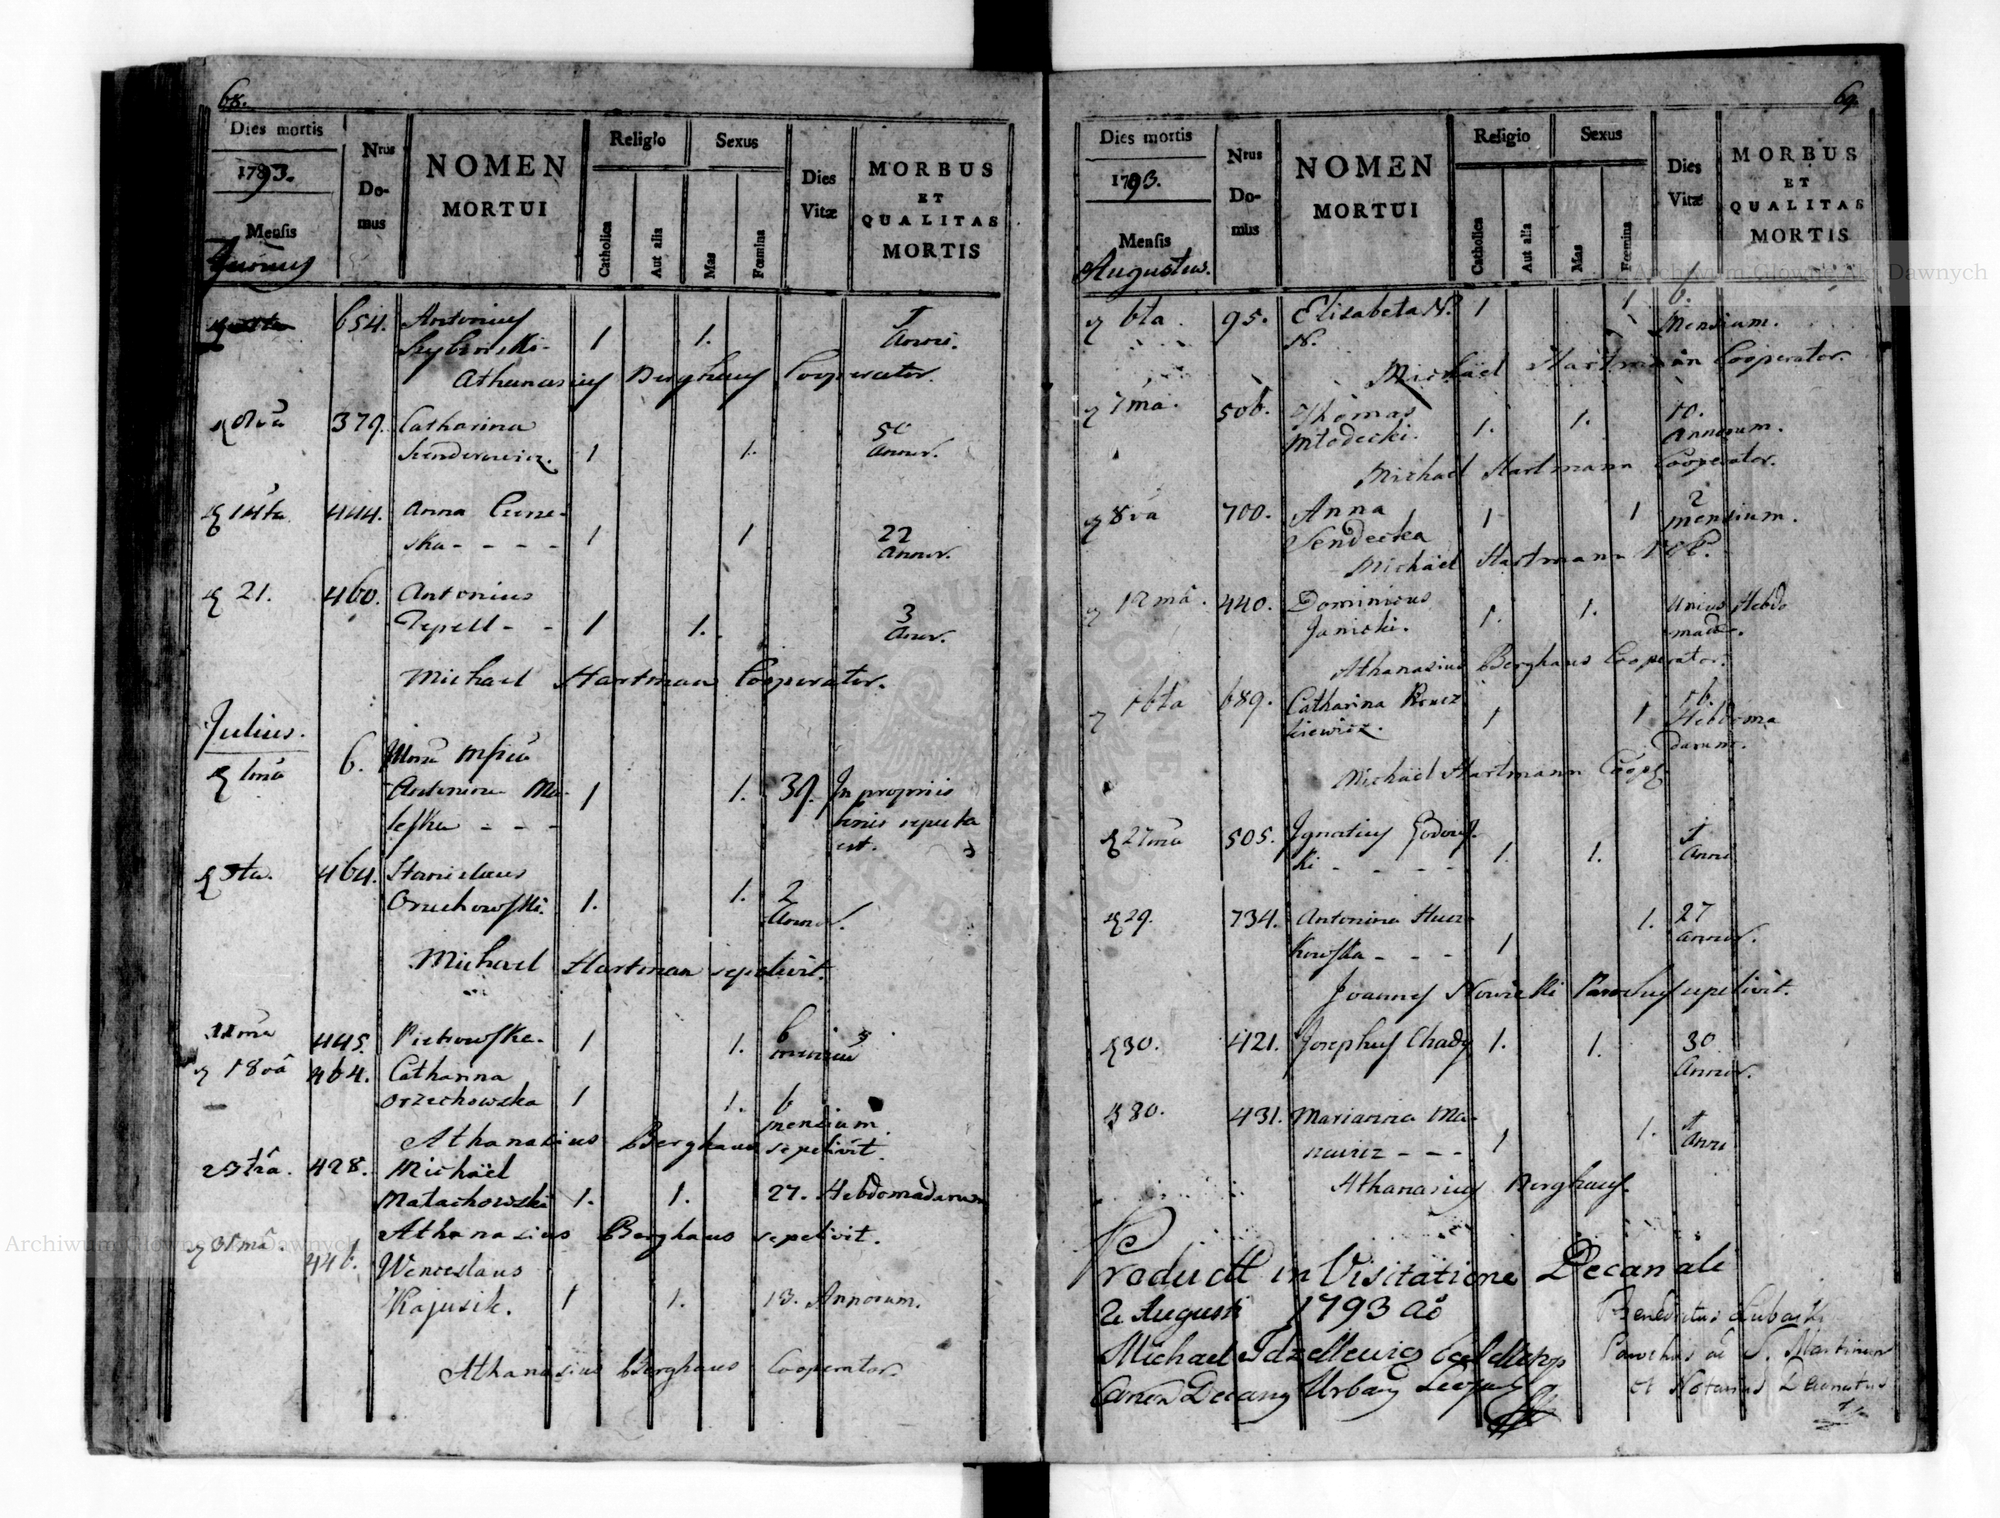 68.
Dies mortis
1793.
Mensis
Junius
Nrus Do-mus
NOMEN
MORTUI
Religio
Catholica
Aut alia
Sexus
Mas
Fœmina
Dies Vitæ
MORBUS
ET
QUALITAS
MORTIS
654. Antonius 1
1 1. Anni.
Athanasius Berghaus Cooperator.
8va 379. Catharina 50
1 1. Annor.
14ta 444. Anna Cune-
ska - - - - 1 1 22
Annor.
21. 460. Antonius 3
1 1. Annor.
Michael Hartman Cooperator.
Julius.
1ma 6.
Antonina Ma- 1 1. 39. In propriis
lefska - - - bonis sepulta
est.
5ta. 464. Stanislaus
Orzechowski. 1. 1. 2
Annor.
Michael Hartman sepelivit.
11ma 445. Piotrowska. 1 1. 6
18va 464. Catharina
Orzechowska 1 1. 6
mensium.
Athanasius Berghaus sepelivit.
23tia. 428. Michaël
Malachowski 1. 1. 27. Hebdomadarum
Athanasius Berghaus sepelivit.
31ma. 446. Wenceslaus
Kajusik. 1 1. 13. Annorum.
Athanasius Berghaus Cooperator
69.
Dies mortis
1793.
Mensis
Augustus.
Nrus Do-mus
NOMEN
MORTUI
Religio
Catholica
Aut alia
Sexus
Mas
Fœmina
Dies Vitæ
MORBUS
ET
QUALITAS
MORTIS
6ta 95. Elisabeta N. 1 1 6.
N. Mensium.
Michaël Hartmann Cooperator.
7ma. 506. Thomas 10.
Młodecki. 1. 1. Annorum.
Michael Hartmann Cooperator.
8va 700. Anna 1 1 2
Sendecka mensium.
Michaël Hartmann
12ma. 440. Dominicus Unius Hebdo
Janicki. 1. 1. madæ.
Athanasius Berghaus Cooperator.
16ta 689. Catharina 16.
1 1 Hebdoma
darum.
Michaël Hartmann Coop
27ma 505. Ignatius 1
ki - - - - 1. 1. Anni.
29. 734. Antonina 1. 27
kowska - - - 1 Annor.
Joannes Nowicki Parochus sepelivit.
30. 421. Josephus Chady 1. 1. 30
Annor.
30. 431. Marianna Ma- 1
1 1. Anni
Athanasius Berghaus.
Product in Visitatione Decanali
2 Augusti 1793 ao
Michael
Benedictus
Parochus ad S. Martinum
et Notarius
Archiwum Główne Akt Dawnych
ARCHIWUM GŁÓWNE AKT DAWNYCH
Archiwum Główne Akt Dawnych